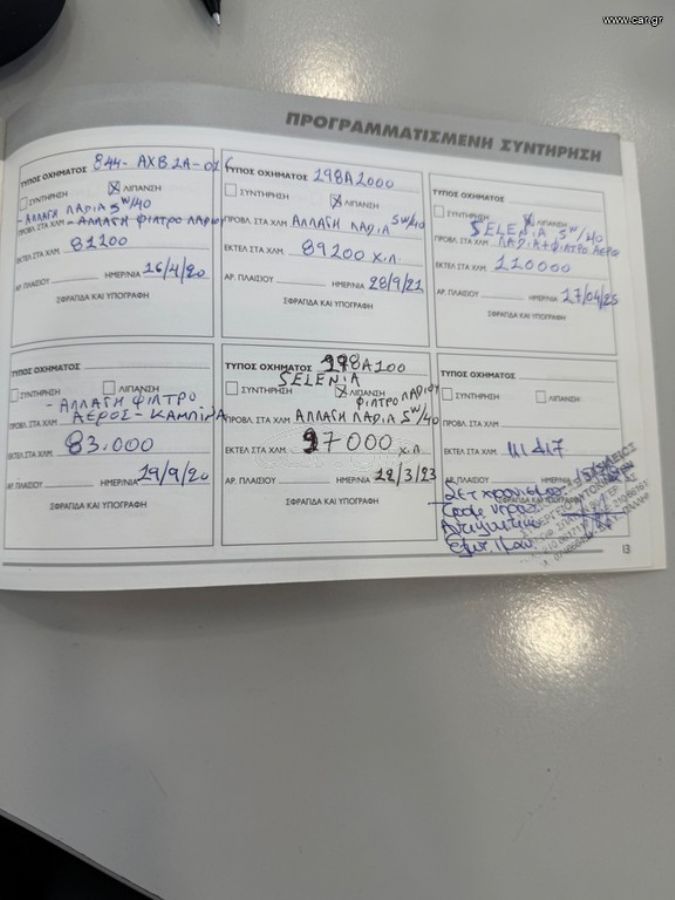 www.car.gr
ΠΡΟΓΡΑΜΜΑΤΙΣΜΕΝΗ ΣΥΝΤΗΡΗΣΗ
ΤΥΠΟΣ ΟΧΗΜΑΤΟΣ 844-AXB1A-01C
ΣΥΝΤΗΡΗΣΗ ΛΙΠΑΝΣΗ
- ΑΛΛΑΓΗ ΛΑΔΙΑ 5W/40
ΠΡΟΒΛ ΣΤΑ ΧΛΜ - ΑΛΛΑΓΗ ΦΙΛΤΡΟ ΛΑΔΙΟΥ
ΕΚΤΕΛ ΣΤΑ ΧΛΜ 81200
ΑΡ. ΠΛΑΙΣΙΟΥ ΗΜΕΡ/ΝΙΑ 16/4/20
ΣΦΡΑΓΙΔΑ ΚΑΙ ΥΠΟΓΡΑΦΗ
ΤΥΠΟΣ ΟΧΗΜΑΤΟΣ 198A1000
ΣΥΝΤΗΡΗΣΗ ΛΙΠΑΝΣΗ
ΠΡΟΒΛ ΣΤΑ ΧΛΜ ΑΛΛΑΓΗ ΛΑΔΙΑ 5W/40
ΕΚΤΕΛ ΣΤΑ ΧΛΜ 89200 Χ.Λ.
ΑΡ. ΠΛΑΙΣΙΟΥ ΗΜΕΡ/ΝΙΑ 28/9/21
ΣΦΡΑΓΙΔΑ ΚΑΙ ΥΠΟΓΡΑΦΗ
ΤΥΠΟΣ ΟΧΗΜΑΤΟΣ
ΣΥΝΤΗΡΗΣΗ ΛΙΠΑΝΣΗ
SELENIA 5W/40
ΠΡΟΒΛ. ΣΤΑ ΧΛΜ ΛΑΔΙΑ+ΦΙΛΤΡΟ ΑΕΡΟ
ΕΚΤΕΛ ΣΤΑ ΧΛΜ 110000
ΑΡ. ΠΛΑΙΣΙΟΥ ΗΜΕΡ/ΝΙΑ 17/04/25
ΣΦΡΑΓΙΔΑ ΚΑΙ ΥΠΟΓΡΑΦΗ
ΤΥΠΟΣ ΟΧΗΜΑΤΟΣ
ΣΥΝΤΗΡΗΣΗ ΛΙΠΑΝΣΗ
- ΑΛΛΑΓΗ ΦΙΛΤΡΟ
ΠΡΟΒΛ ΣΤΑ ΧΛΜ ΑΕΡΟΣ - ΚΑΜΠΙΝΑ
ΕΚΤΕΛ ΣΤΑ ΧΛΜ 83.000
ΑΡ. ΠΛΑΙΣΙΟΥ ΗΜΕΡ/ΝΙΑ 29/9/20
ΣΦΡΑΓΙΔΑ ΚΑΙ ΥΠΟΓΡΑΦΗ
ΤΥΠΟΣ ΟΧΗΜΑΤΟΣ 198A100
SELENIA
ΣΥΝΤΗΡΗΣΗ ΛΙΠΑΝΣΗ
ΦΙΛΤΡΟ ΛΑΔΙΟΥ
ΠΡΟΒΛ ΣΤΑ ΧΛΜ ΑΛΛΑΓΗ ΛΑΔΙΑ 5W/40
ΕΚΤΕΛ ΣΤΑ ΧΛΜ 97000 Χ.Λ
ΑΡ. ΠΛΑΙΣΙΟΥ ΗΜΕΡ/ΝΙΑ 12/3/23
ΣΦΡΑΓΙΔΑ ΚΑΙ ΥΠΟΓΡΑΦΗ
ΤΥΠΟΣ ΟΧΗΜΑΤΟΣ
ΣΥΝΤΗΡΗΣΗ ΛΙΠΑΝΣΗ
ΠΡΟΒΛ ΣΤΑ ΧΛΜ
ΕΚΤΕΛ ΣΤΑ ΧΛΜ 111417
ΑΡ. ΠΛΑΙΣΙΟΥ
ΣΦΡΑΓΙΔΑ ΚΑΙ ΥΠΟΓΡΑΦΗ
13